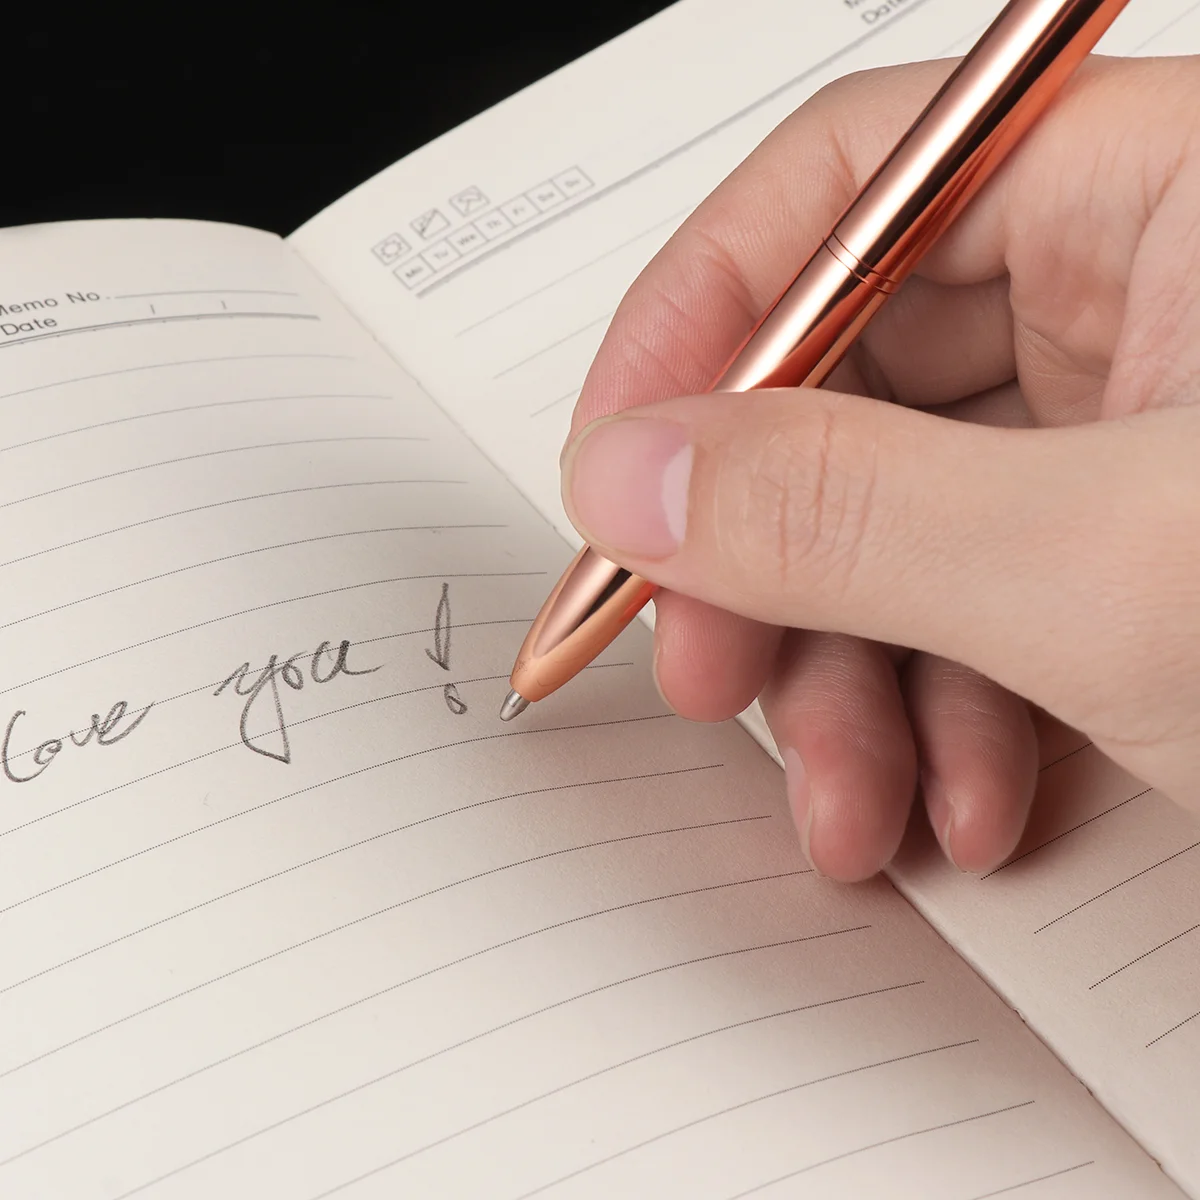 Memo No.
Date / /
Mo Tu We Th Fr Sa Su
Date
Love you!